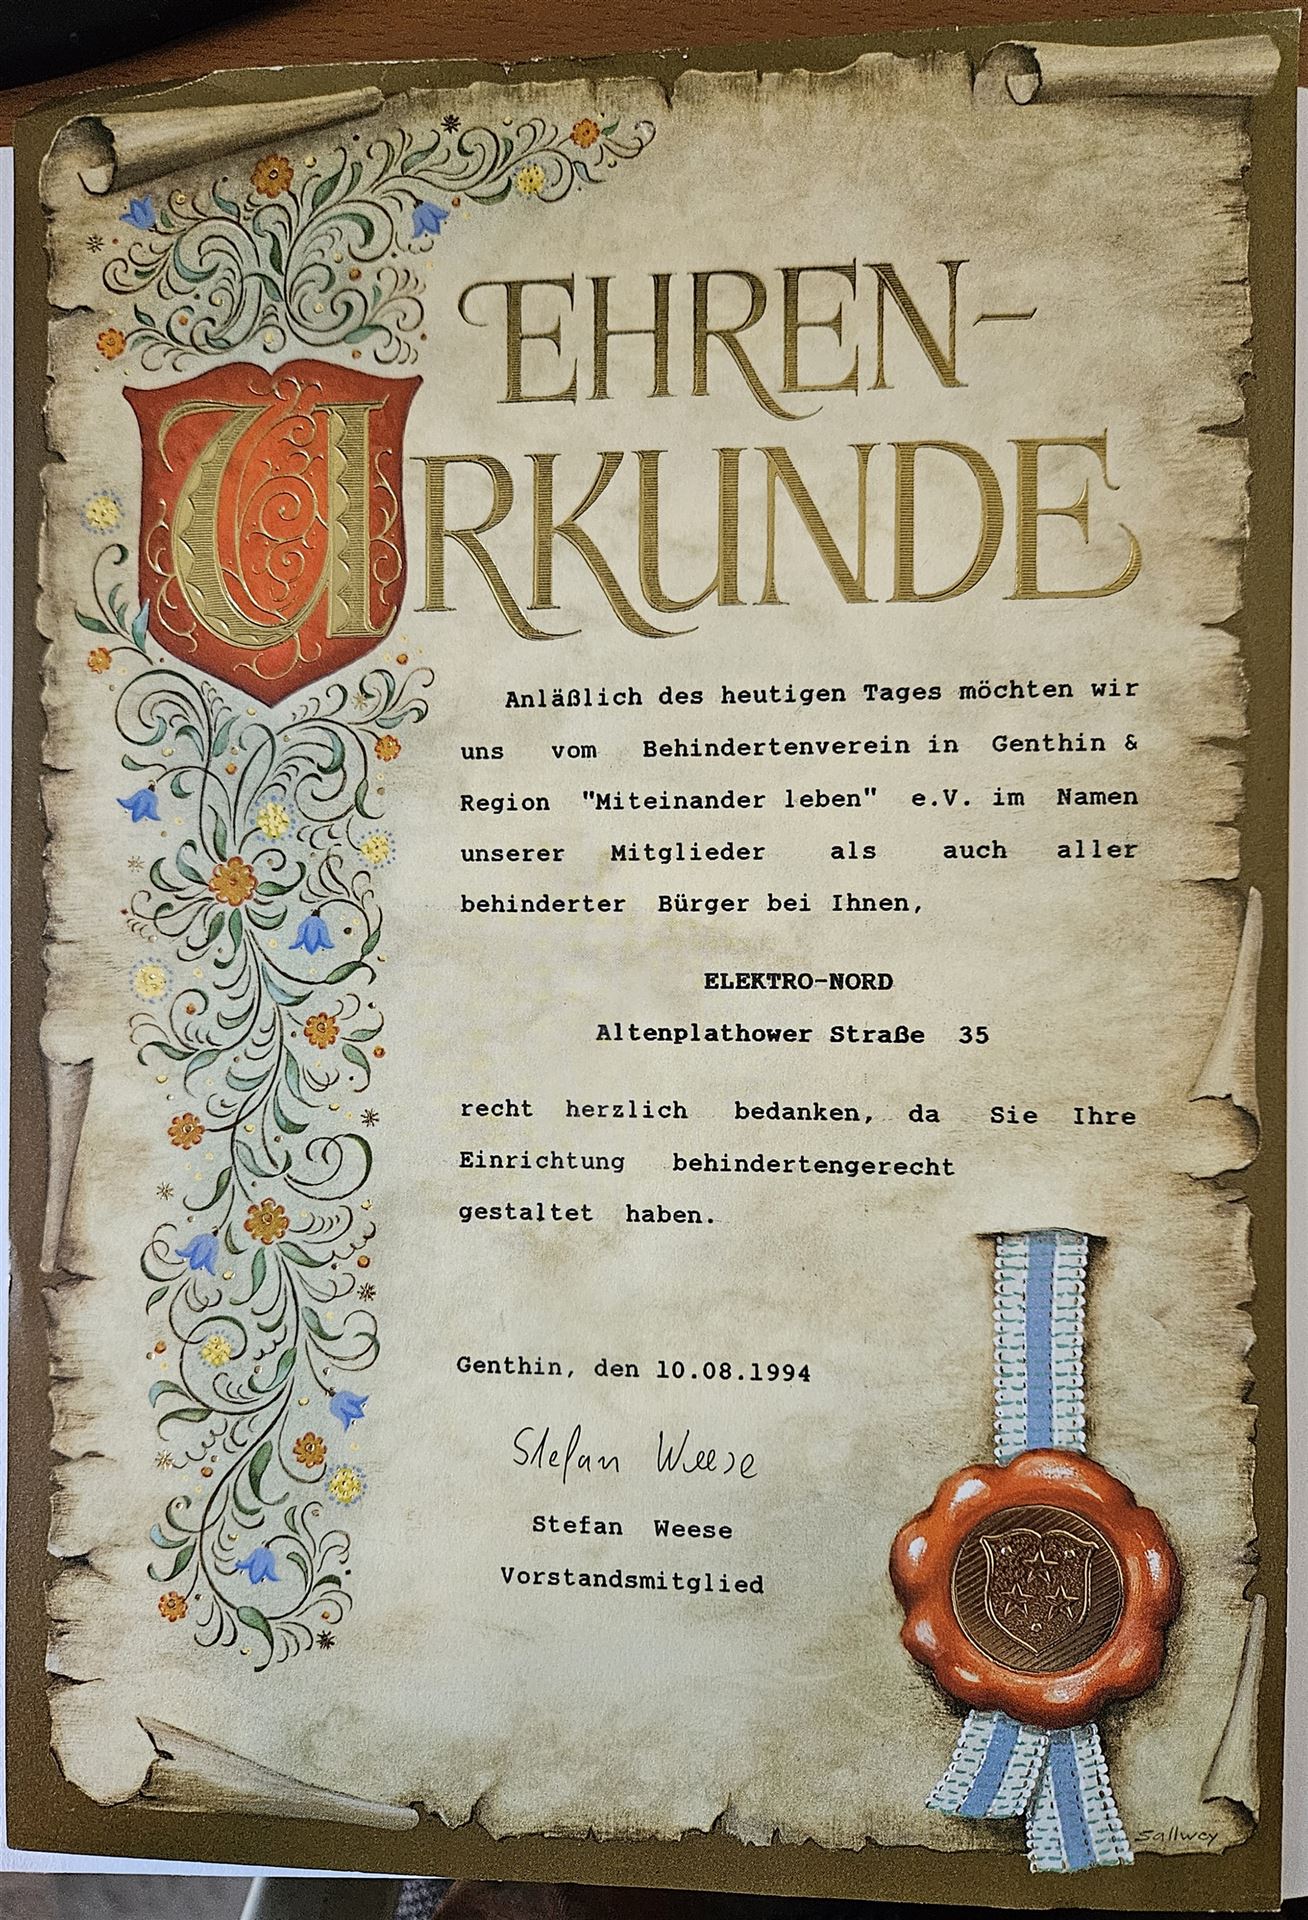 EHREN-
URKUNDE
Anläßlich des heutigen Tages möchten wir
uns vom Behindertenverein in Genthin &
Region "Miteinander leben" e.V. im Namen
unserer Mitglieder als auch aller
behinderter Bürger bei Ihnen,
ELEKTRO-NORD
Altenplathower Straße 35
recht herzlich bedanken, da Sie Ihre
Einrichtung behindertengerecht
gestaltet haben.
Genthin, den 10.08.1994
Stefan Weese
Stefan Weese
Vorstandsmitglied
Sallwey